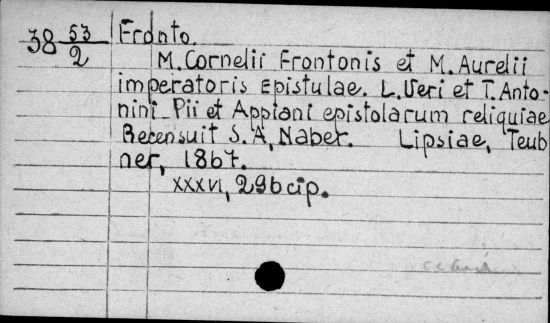 38 53/2 Fronto.
M. Cornelii Frontonis et M. Aurelii
imperatoris Epistulae. L. Veri et T. Anto-
nini Pii et Appiani epistolarum reliquiae
Recensuit S. A, Naber. Lipsiae, Teub
ner, 1867.
XXXVI, 296 cip.